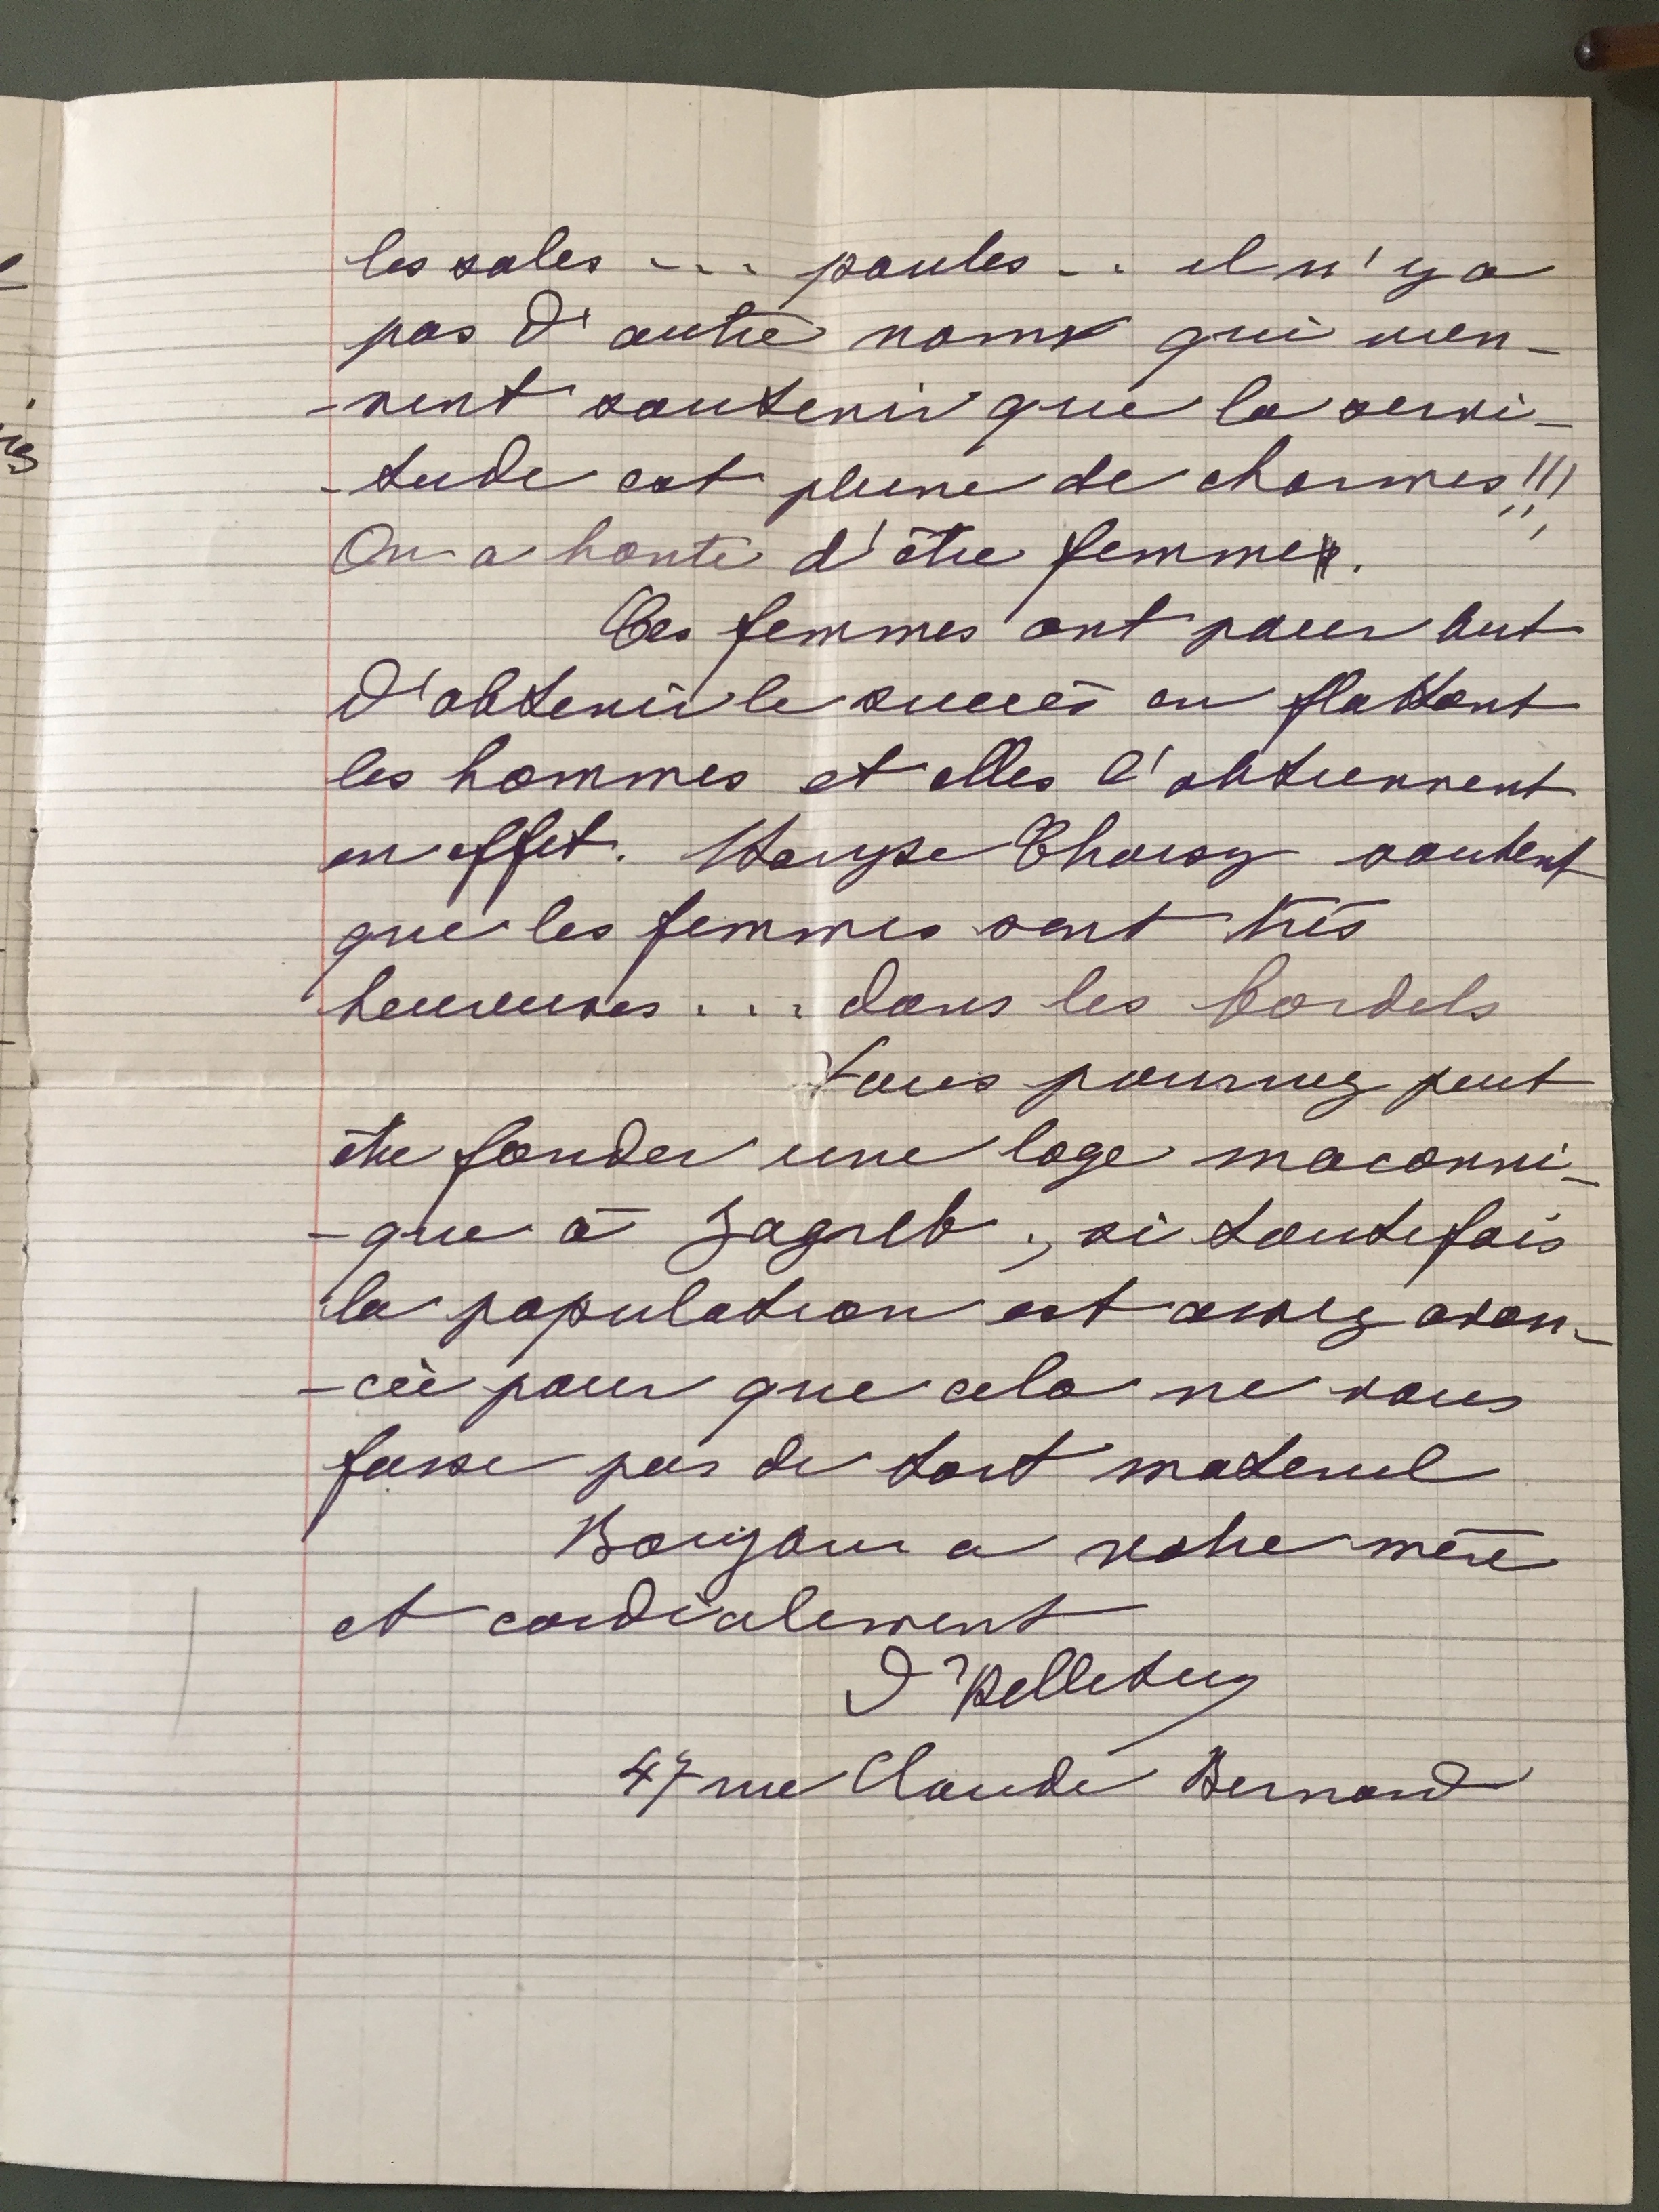 les sales ... poules .. il n'y a
pas d'autre nom qui vien-
-nent soutenir que la servi-
-tude est pleine de charmes!!!
On a honte d'être femme.
Ces femmes ont pour but
d'obtenir le succès en flattant
les hommes et elles l'obtiennent
en effet. Maryse Choisy soutient
que les femmes sont très
heureuses ... dans les bordels
Vous pourriez peut
être fonder une loge maconni-
-que à Zagreb ; si toutefois
la population est assez avan-
-cée pour que cela ne vous
fasse pas de tort materiel
Bonjour a votre mère
et cordialement
D Pelletier
47 rue Claude Bernard